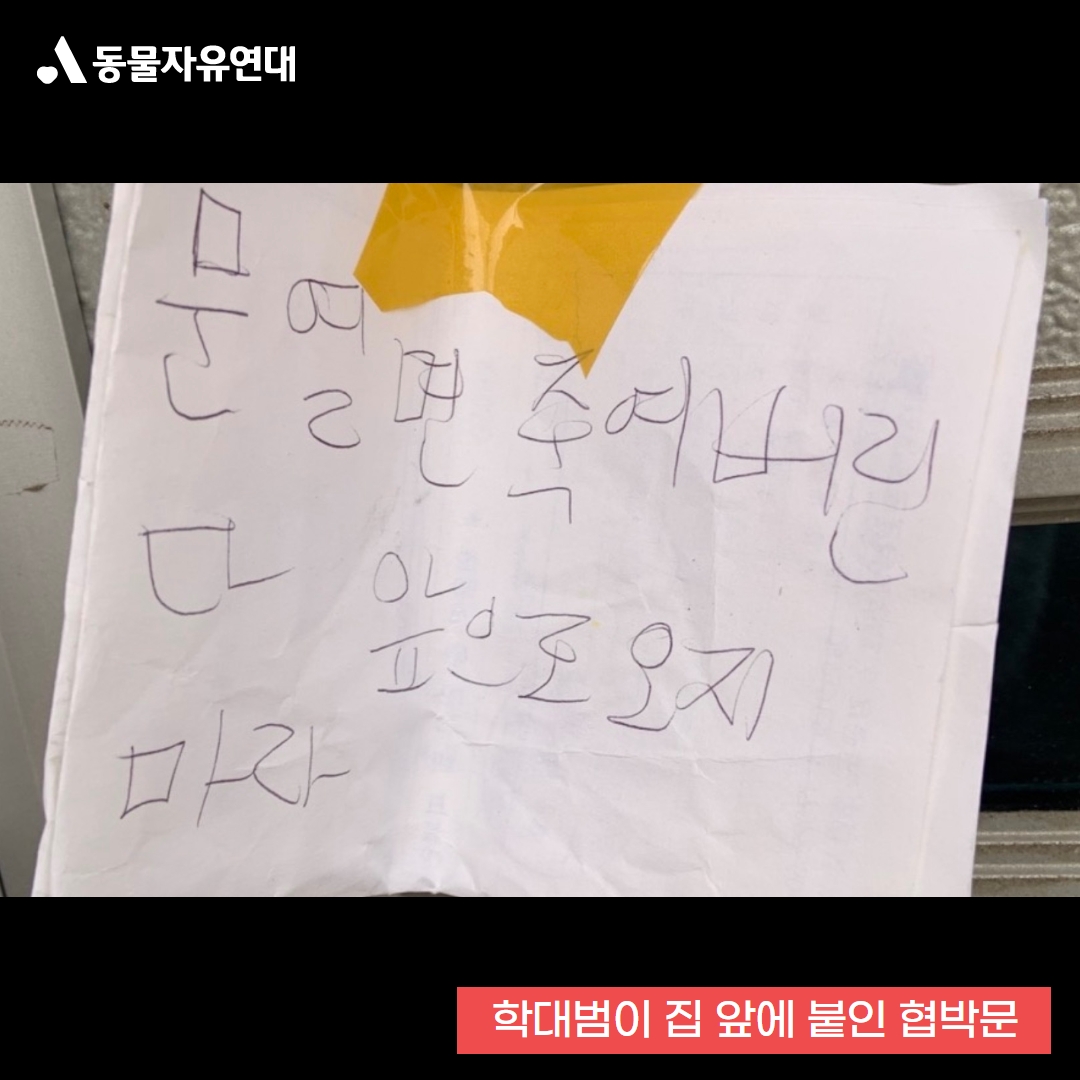 동물자유연대
문 열면 죽여버린
다 앞으로 오지
마라
학대범이 집 앞에 붙인 협박문